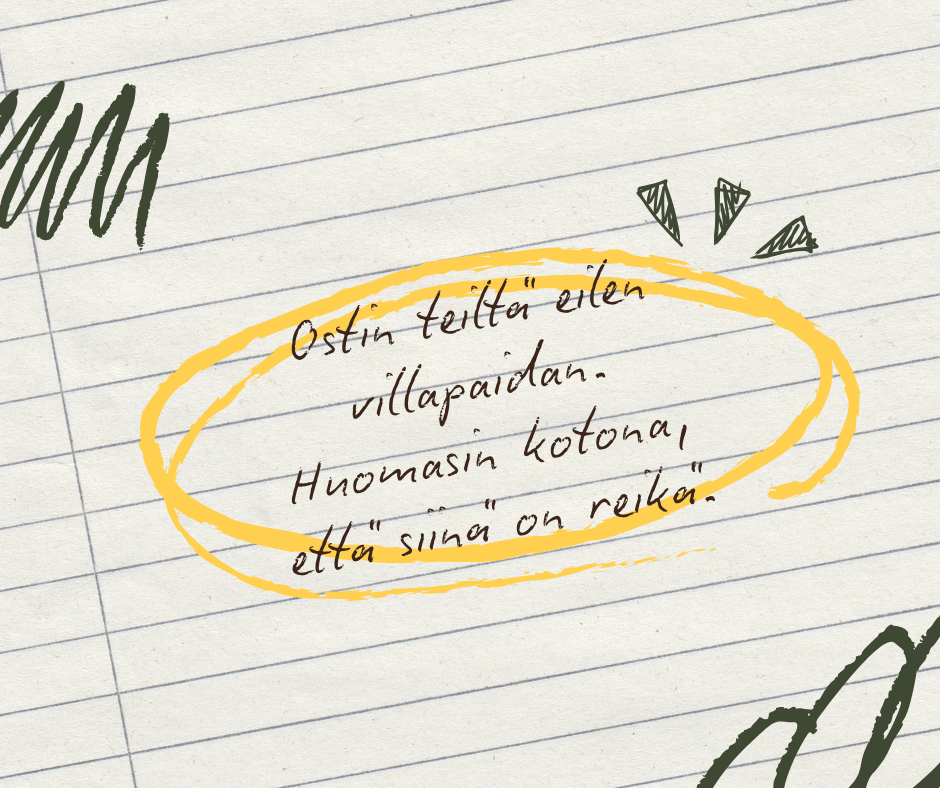 Ostin teiltä eilen
villapaidan.
Huomasin kotona,
että siinä on reikä.